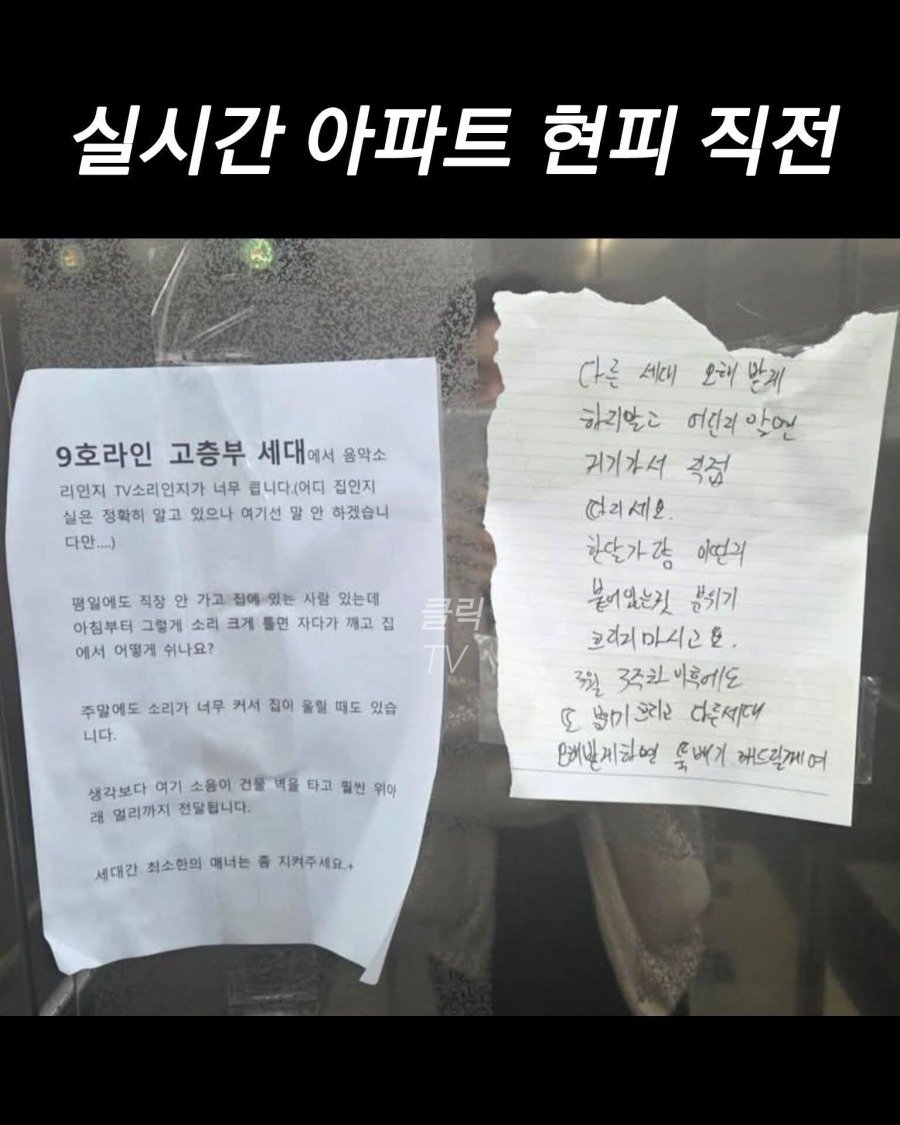 실시간 아파트 현피 직전
9호라인 고층부 세대에서 음악소
리인지 TV소리인지가 너무 큽니다.(어디 집인지
실은 정확히 알고 있으나 여기선 말 안 하겠습니
다만....)
평일에도 직장 안 가고 집에 있는 사람 있는데
아침부터 그렇게 소리 크게 틀면 자다가 깨고 집
에서 어떻게 쉬나요?
주말에도 소리가 너무 커서 집이 울릴 때도 있습
니다.
생각보다 여기 소음이 건물 벽을 타고 훨씬 위아
래 멀리까지 전달됩니다.
세대간 최소한의 매너는 좀 지켜주세요.
다른 세대 오해 받게
하지말고 어딘지 알면
거기가서 직접
따지세요.
한달가량 이딴거
붙어있는것 분위기
흐리지마시고요.
3월 3주차 이후에도
또 분위기 흐리고 다른세대
오해받게하면 뚝배기 깨드릴게여
클릭
TV